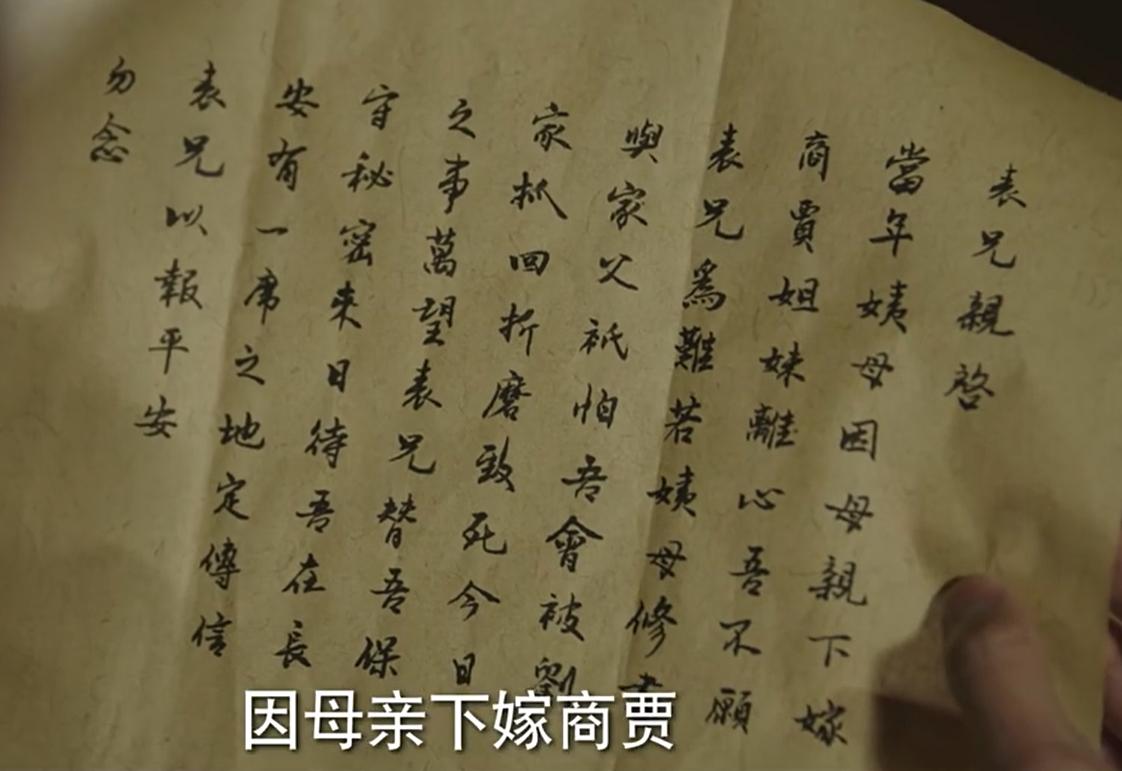 表兄親啓
當年姨母因母親下嫁
商賈姐妹離心吾不願
表兄爲難若姨母修書
與家父衹怕吾會被劉
家抓回折磨致死今日
之事萬望表兄替吾保
守秘密來日待吾在長
安有一席之地定傳信
表兄以報平安
勿念
因母亲下嫁商贾